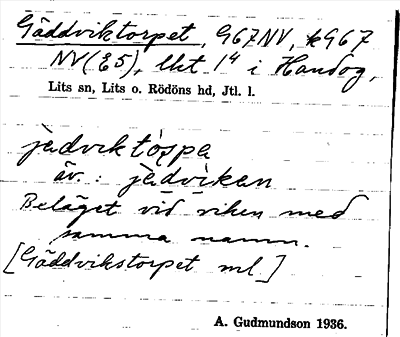 Gäddviktorpet, G67NV, k967
NV(E5), lht 1⁴ i Handog,
Lits sn, Lits o. Rödöns hd, Jtl. l.
jädviktòspa
äv.: jädvìkan
Beläget vid viken med
samma namn.
[Gäddvikstorpet ml]
A. Gudmundson 1936.